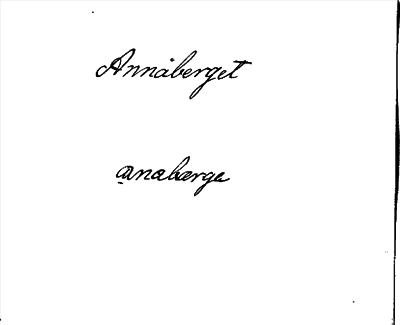 Annåberget
a̱nabærge